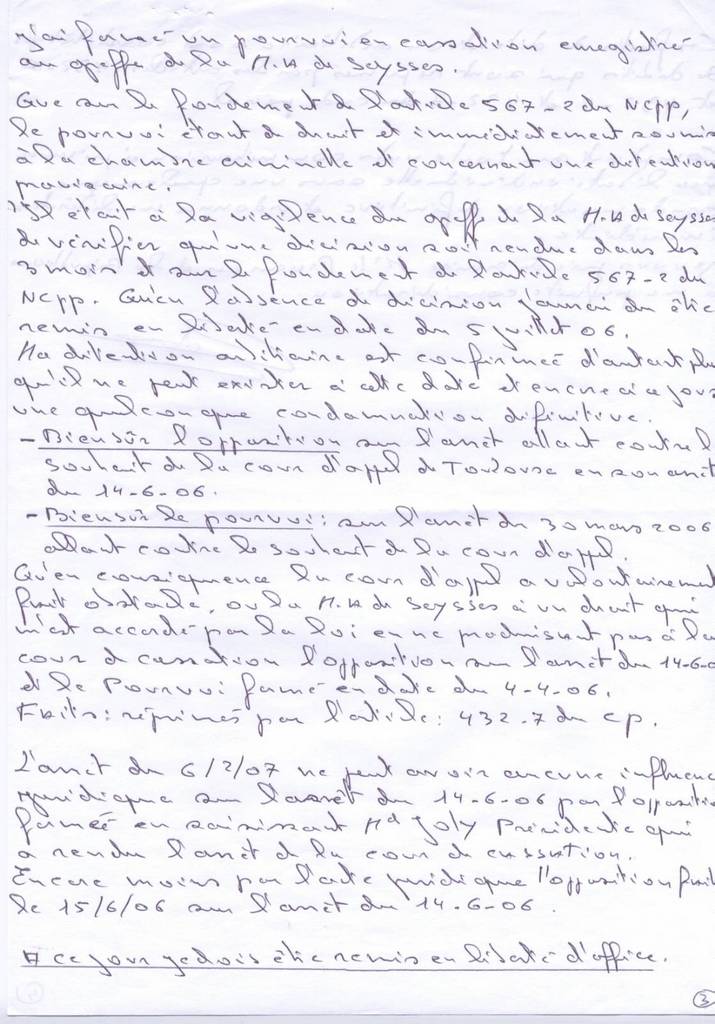 j'ai formé un pourvoi en cassation enregistré
au greffe de la M.A de Seysses.
Que sur le fondement de l'article 567-2 du NCPP,
le pourvoi étant de droit et immédiatement soumis
à la chambre criminelle et concernant une détention
provisoire.
Il était à la vigilence du greffe de la M.A de Seysses
de vérifier qu'une décision soit rendue dans les
3 mois et sur le fondement de l'article 567-2 du
NCPP. Qu'en l'absence de décision j'aurau du être
remis en liberté en date du 5 juillet 06.
Ma détention arbitraire est confirmée d'autant plus
qu'il ne peut exister à cette date et encore à ce jour
une quelconque condamnation définitive.
- Biensûr l'opposition sur l'arrêt allant contre l
souhait de la cour d'appel de Toulouse en son arrêt
du 14-6-06.
- Biensûr le pourvoi: sur l'arrêt du 30 mars 2006
allant contre le souhait de la cour d'appel.
Qu'en conséquence la cour d'appel a volontairement
fait obstacle, ou la M.A de Seysses à un droit qui
m'est accordé par la loi en ne produisant pas à la
cour de cassation l'opposition sur l'arrêt du 14-6-0
et le Pourvoi formé en date du 4-4-06.
Faits: réprimés par l'article: 432-7 du CP.
L'arrêt du 6/2/07 ne peut avoir aucune influence
juridique sur l'arrêt du 14-6-06 par l'opposition
formée en saisissant Md Joly Présidente qui
a rendu l'arrêt de la cour de cassation.
Encore moins par l'acte juridique l'opposition fait
le 15/6/06 sur l'arrêt du 14-6-06.
A ce jour je dois être remis en liberté d'office.
3